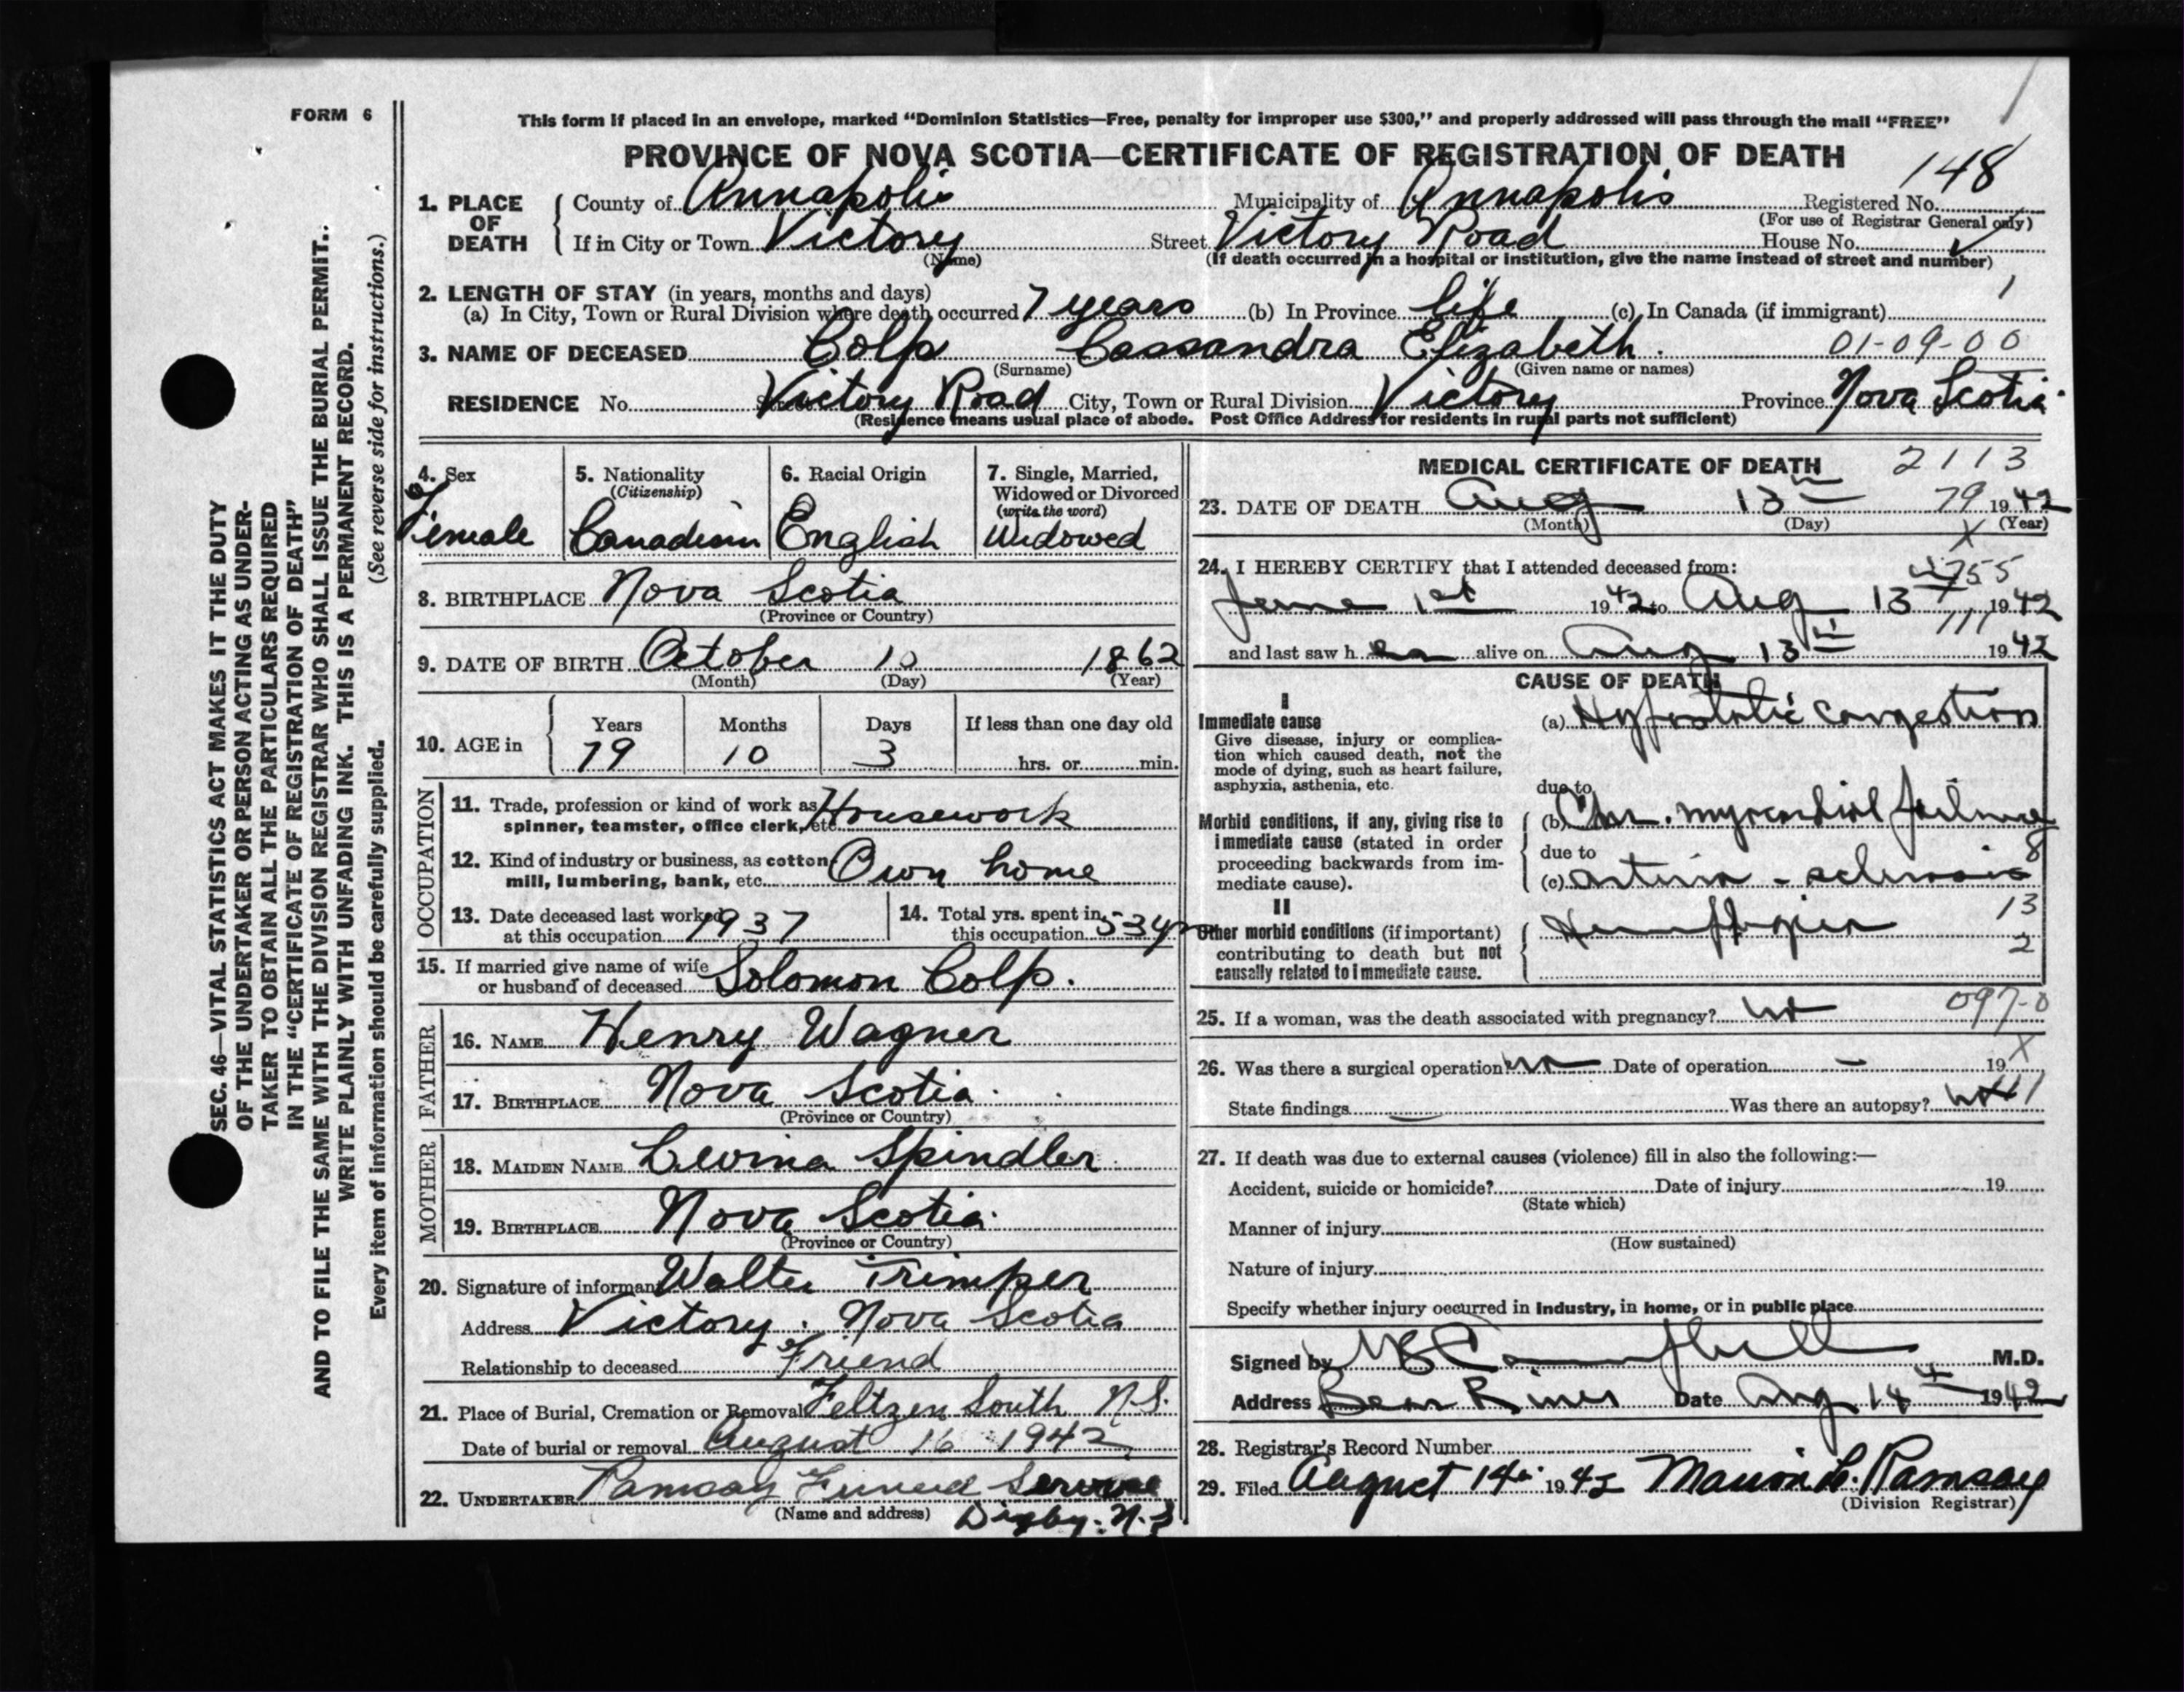 FORM 6
This form if placed in an envelope, marked "Dominion Statistics—Free, penalty for improper use $300," and properly addressed will pass through the mail "FREE"
PROVINCE OF NOVA SCOTIA—CERTIFICATE OF REGISTRATION OF DEATH
148
1. PLACE OF DEATH County of Annapolis Municipality of Annapolis Registered No.
(For use of Registrar General only)
If in City or Town Victory Street Victory Road House No.
(Name) (If death occurred in a hospital or institution, give the name instead of street and number)
2. LENGTH OF STAY (in years, months and days)
(a) In City, Town or Rural Division where death occurred 7 years (b) In Province life (c) In Canada (if immigrant)
3. NAME OF DECEASED Colp Cassandra Elizabeth. 01-09-00
(Surname) (Given name or names)
RESIDENCE No. Street Victory Road City, Town or Rural Division Victory Province Nova Scotia
(Residence means usual place of abode. Post Office Address for residents in rural parts not sufficient)
4. Sex
Female
5. Nationality
(Citizenship)
Canadian
6. Racial Origin
English
7. Single, Married,
Widowed or Divorced
(write the word)
Widowed
8. BIRTHPLACE Nova Scotia
(Province or Country)
9. DATE OF BIRTH October 10 1862
(Month) (Day) (Year)
10. AGE in
Years Months Days If less than one day old
79 10 3 hrs. or min.
OCCUPATION
11. Trade, profession or kind of work as
spinner, teamster, office clerk, etc. Housework
12. Kind of industry or business, as cotton
mill, lumbering, bank, etc. Own home
13. Date deceased last worked
at this occupation 1937
14. Total yrs. spent in
this occupation 53 yr
15. If married give name of wife
or husband of deceased Solomon Colp.
FATHER
16. NAME Henry Wagner
17. BIRTHPLACE Nova Scotia
(Province or Country)
MOTHER
18. MAIDEN NAME Levina Spindler
19. BIRTHPLACE Nova Scotia
(Province or Country)
20. Signature of informant Walter Trimper
Address Victory, Nova Scotia
Relationship to deceased Friend
21. Place of Burial, Cremation or Removal Feltzen South N.S.
Date of burial or removal August 16 1942
22. UNDERTAKER Ramsay Funeral Service
(Name and address) Digby. N.S.
MEDICAL CERTIFICATE OF DEATH 2113
23. DATE OF DEATH Aug 13th 79 1942
(Month) (Day) X (Year)
24. I HEREBY CERTIFY that I attended deceased from:
June 1st 1942 to Aug 13th 1942
and last saw h er alive on Aug 13th 1942
CAUSE OF DEATH
I
Immediate cause
Give disease, injury or complication which caused death, not the
mode of dying, such as heart failure,
asphyxia, asthenia, etc.
(a) Hypostatic congestion
due to
Morbid conditions, if any, giving rise to
immediate cause (stated in order
proceeding backwards from immediate cause).
(b) Chr. myocardial failure
due to
8
(c) arterio-sclerosis
II
Other morbid conditions (if important)
contributing to death but not
causally related to immediate cause.
Hemiplegia
13
2
25. If a woman, was the death associated with pregnancy? no 097-0
26. Was there a surgical operation? no Date of operation – 19 X
State findings Was there an autopsy? no
27. If death was due to external causes (violence) fill in also the following:—
Accident, suicide or homicide? Date of injury 19
(State which)
Manner of injury
(How sustained)
Nature of injury
Specify whether injury occurred in industry, in home, or in public place
Signed by Campbell M.D.
Address Bear River Date Aug 14th 1942
28. Registrar's Record Number
29. Filed August 14th 1942 Marion L. Ramsay
(Division Registrar)
SEC. 46—VITAL STATISTICS ACT MAKES IT THE DUTY
OF THE UNDERTAKER OR PERSON ACTING AS UNDER-
TAKER TO OBTAIN ALL THE PARTICULARS REQUIRED
IN THE "CERTIFICATE OF REGISTRATION OF DEATH"
AND TO FILE THE SAME WITH THE DIVISION REGISTRAR WHO SHALL ISSUE THE BURIAL PERMIT.
WRITE PLAINLY WITH UNFADING INK. THIS IS A PERMANENT RECORD.
Every item of information should be carefully supplied. (See reverse side for instructions.)